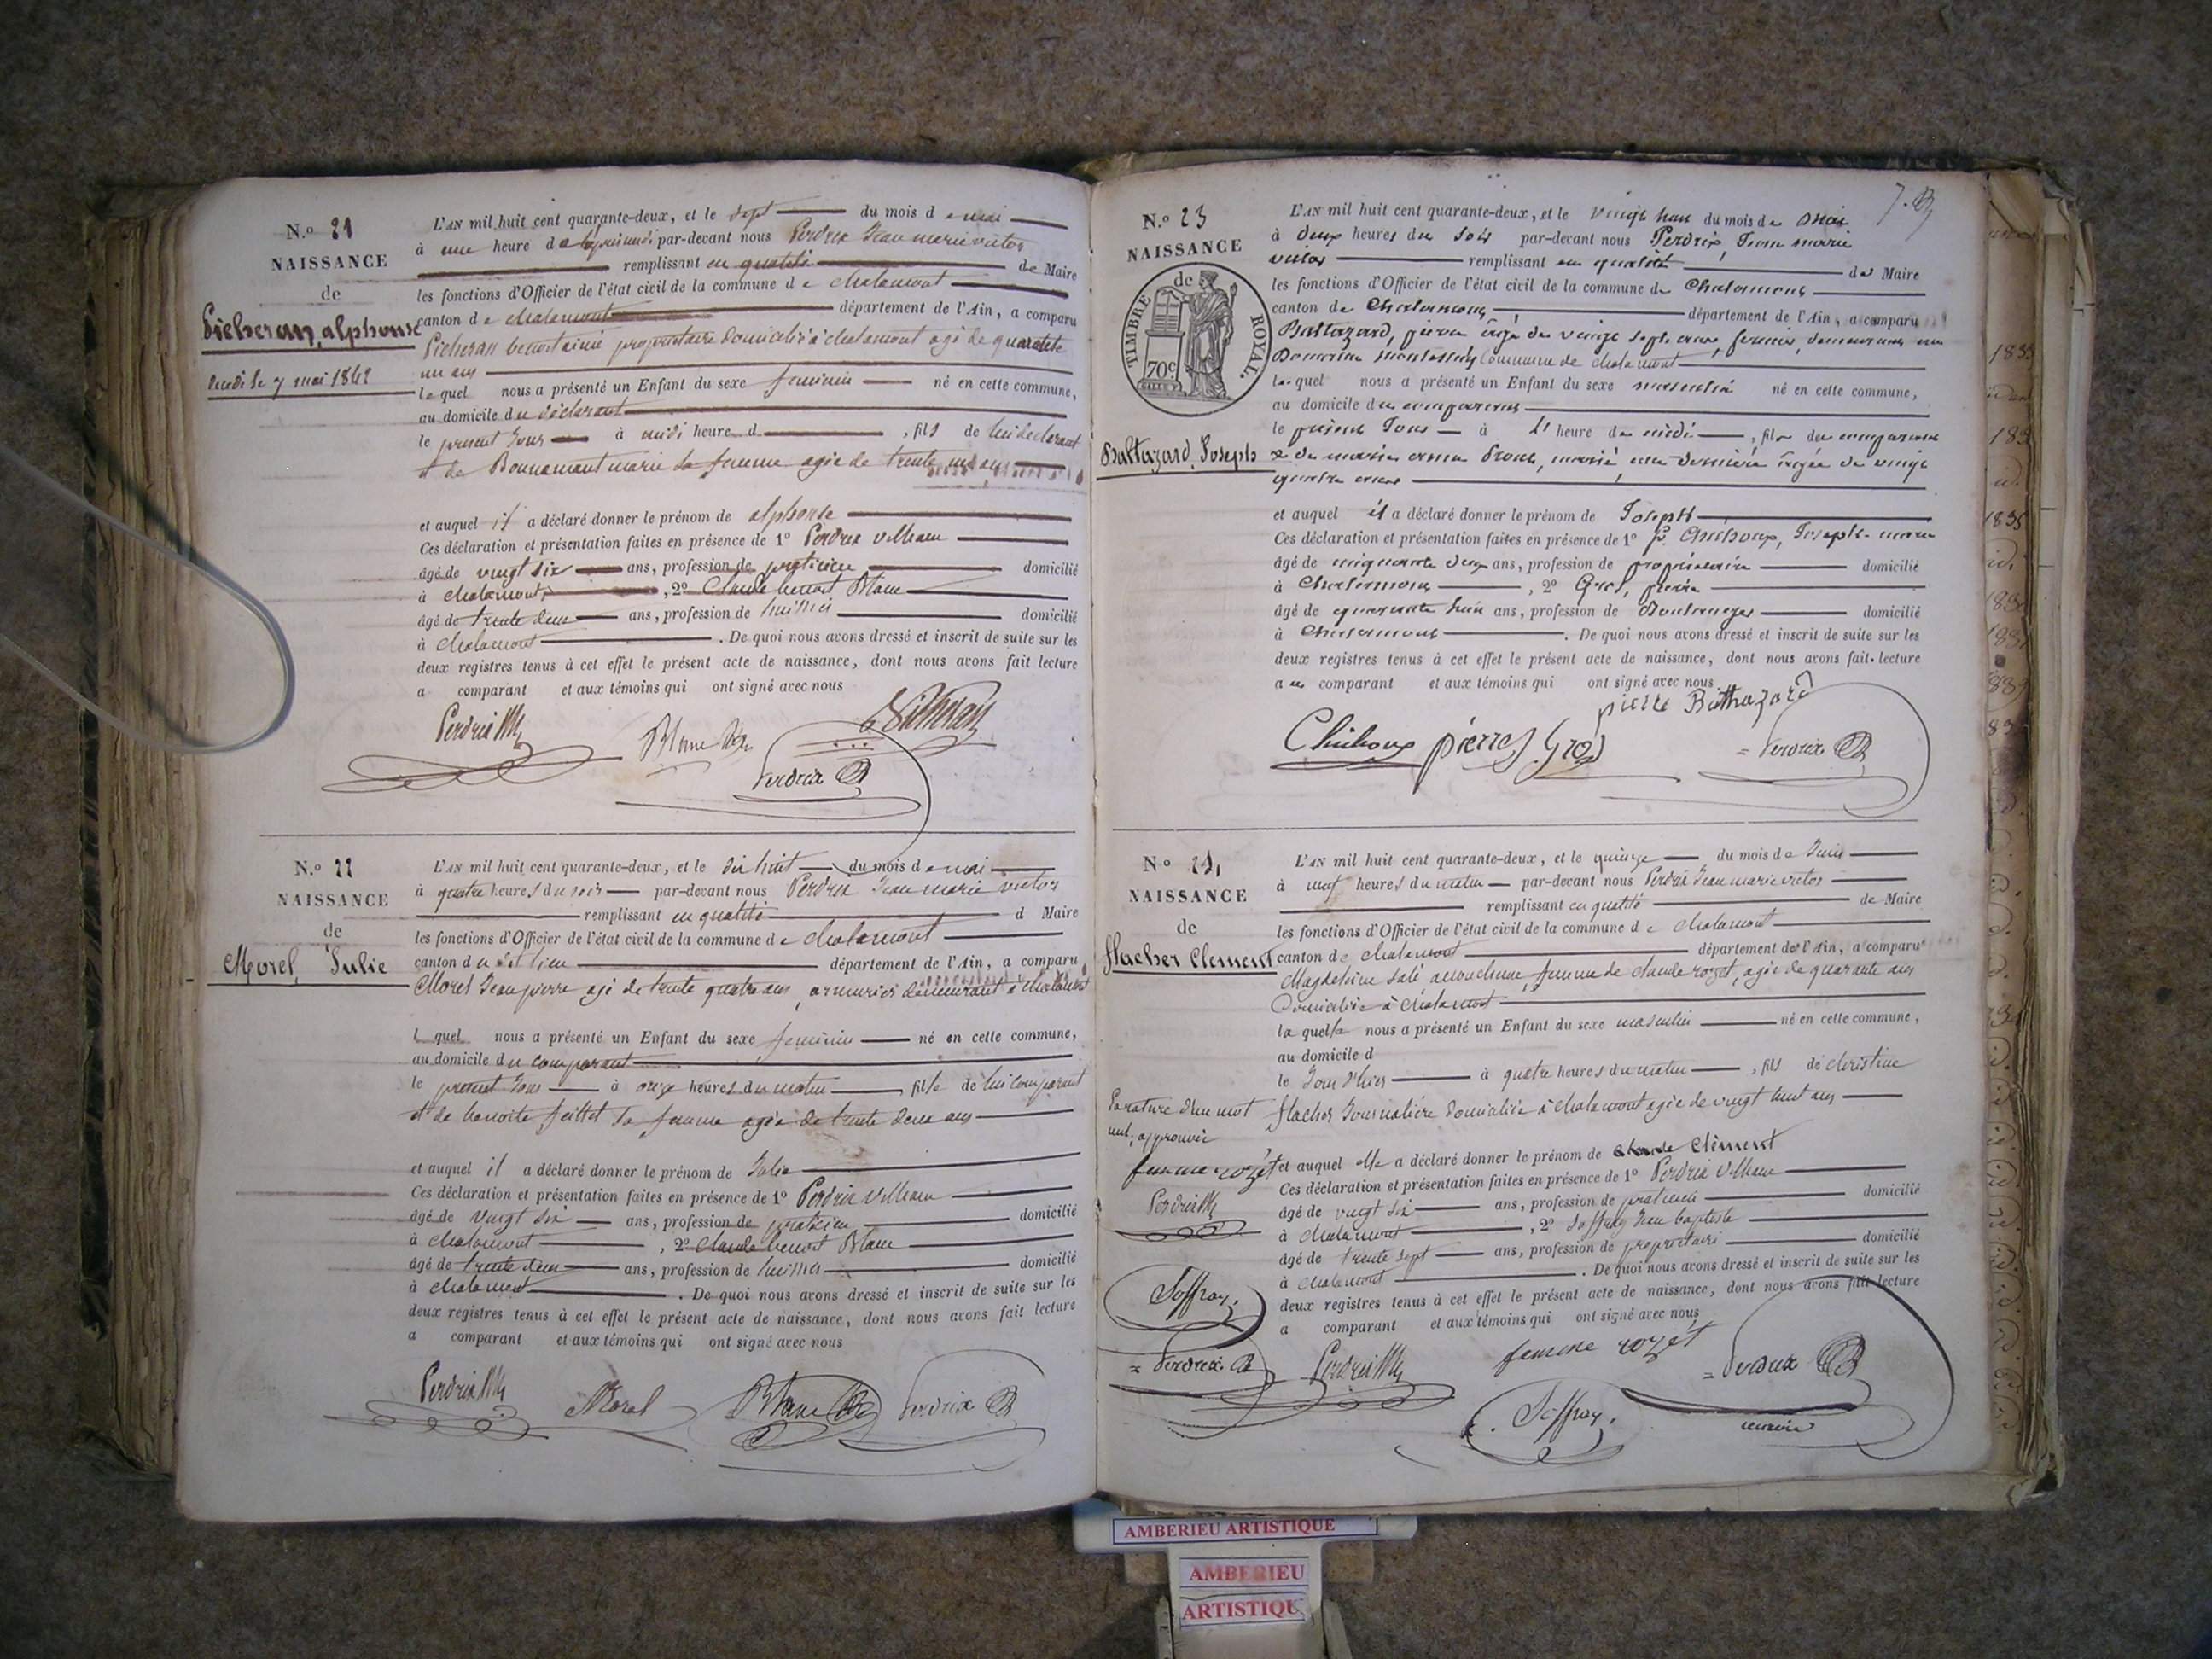 N.o 21
NAISSANCE
de
Picheran, alphonse
décédé le 7 mai 1842
L'AN mil huit cent quarante-deux, et le sept du mois de mai
à une heure de l'après midi par-devant nous Perdrix Jean marie victor
remplissant en qualité de Maire
les fonctions d'Officier de l'état civil de la commune de chalamont
canton de chalamont département de l'Ain, a comparu
Picheran benoit ainé propriétaire domicilié à chalamont agé de quarante
un ans
lequel nous a présenté un Enfant du sexe feminin né en cette commune,
au domicile du déclarant
le present Jour à midi heure d , fils de lui déclarant
et de Bonnamant marie sa femme agée de trente
et auquel il a déclaré donner le prénom de alphonse
Ces déclaration et présentation faites en présence de 1o Perdrix
âgé de vingt six ans, profession de praticien domicilié
à chalamont, 2o Claude benoit Blanc
âgé de trente deux ans, profession de huissier domicilié
à chalamont . De quoi nous avons dressé et inscrit de suite sur les
deux registres tenus à cet effet le présent acte de naissance, dont nous avons fait lecture
a comparant et aux témoins qui ont signé avec nous
Perdrix Blanc Picheran
Perdrix
N.o 22
NAISSANCE
de
Morel, Julie
L'AN mil huit cent quarante-deux, et le dix huit du mois de mai
à quatre heures du soir par-devant nous Perdrix Jean marie victor
remplissant en qualité d Maire
les fonctions d'Officier de l'état civil de la commune de chalamont
canton du dit lieu département de l'Ain, a comparu
Morel Jean pierre agé de trente quatre ans, armurier demeurant à chalamont
l quel nous a présenté un Enfant du sexe feminin né en cette commune,
au domicile du comparant
le present Jour à onze heures du matin , fille de lui comparant
et de benoite feillet sa femme agée de trente deux ans
et auquel il a déclaré donner le prénom de Julie
Ces déclaration et présentation faites en présence de 1o Perdrix
âgé de vingt six ans, profession de praticien domicilié
à chalamont , 2o Claude benoit Blanc
âgé de trente deux ans, profession de huissier domicilié
à chalamont . De quoi nous avons dressé et inscrit de suite sur les
deux registres tenus à cet effet le présent acte de naissance, dont nous avons fait lecture
a comparant et aux témoins qui ont signé avec nous
Perdrix Morel Blanc Perdrix
7.
N.o 23
NAISSANCE
de
TIMBRE ROYAL.
70c
Baltazard, Joseph
L'AN mil huit cent quarante-deux, et le vingt huit du mois de mai
à deux heures du soir par-devant nous Perdrix, Jean marie
victor remplissant en qualité de Maire
les fonctions d'Officier de l'état civil de la commune de Chalamont
canton de Chalamont département de l'Ain, a comparu
Baltazard, pierre âgé de vingt sept ans, fermier, demeurant au
Domaine commune de chalamont
lequel nous a présenté un Enfant du sexe masculin né en cette commune,
au domicile du comparant
le présent Jour à heure de midi , fils du comparant
et de marie anne , mariés, cette dernière âgée de vingt
quatre ans
et auquel il a déclaré donner le prénom de Joseph
Ces déclaration et présentation faites en présence de 1o Chichoux, Joseph-marie
âgé de cinquante deux ans, profession de propriétaire domicilié
à Chalamont , 2o Gros, pierre
âgé de quarante huit ans, profession de Boulanger domicilié
à Chalamont . De quoi nous avons dressé et inscrit de suite sur les
deux registres tenus à cet effet le présent acte de naissance, dont nous avons fait lecture
a u comparant et aux témoins qui ont signé avec nous
pierre Balthazard
Chichoux pierre Gros Perdrix
N.o 24
NAISSANCE
de
flacher Clement
L'AN mil huit cent quarante-deux, et le quinze du mois de Juin
à neuf heures du matin par-devant nous Perdrix Jean marie victor
remplissant en qualité de Maire
les fonctions d'Officier de l'état civil de la commune de chalamont
canton de chalamont département de l'Ain, a comparu
Magdeleine Salé accoucheuse, femme de claude rozet, agée de quarante ans
domiciliée à chalamont
laquelle nous a présenté un Enfant du sexe masculin né en cette commune,
au domicile d
le Jour d'hier à quatre heures du matin , fils de christine
flacher Journalière domiciliée à chalamont agée de vingt huit ans
La rature d'un mot
nul, approuvée
femme rozet
Perdrix
Joffray
Perdrix
et auquel elle a déclaré donner le prénom de Clément
Ces déclaration et présentation faites en présence de 1o Perdrix
âgé de vingt six ans, profession de praticien domicilié
à chalamont , 2o Joffray Jean baptiste
âgé de trente sept ans, profession de propriétaire domicilié
à chalamont . De quoi nous avons dressé et inscrit de suite sur les
deux registres tenus à cet effet le présent acte de naissance, dont nous avons fait lecture
a comparant et aux témoins qui ont signé avec nous
Perdrix femme rozet Perdrix
Joffray
AMBERIEU ARTISTIQUE
AMBERIEU
ARTISTIQUE